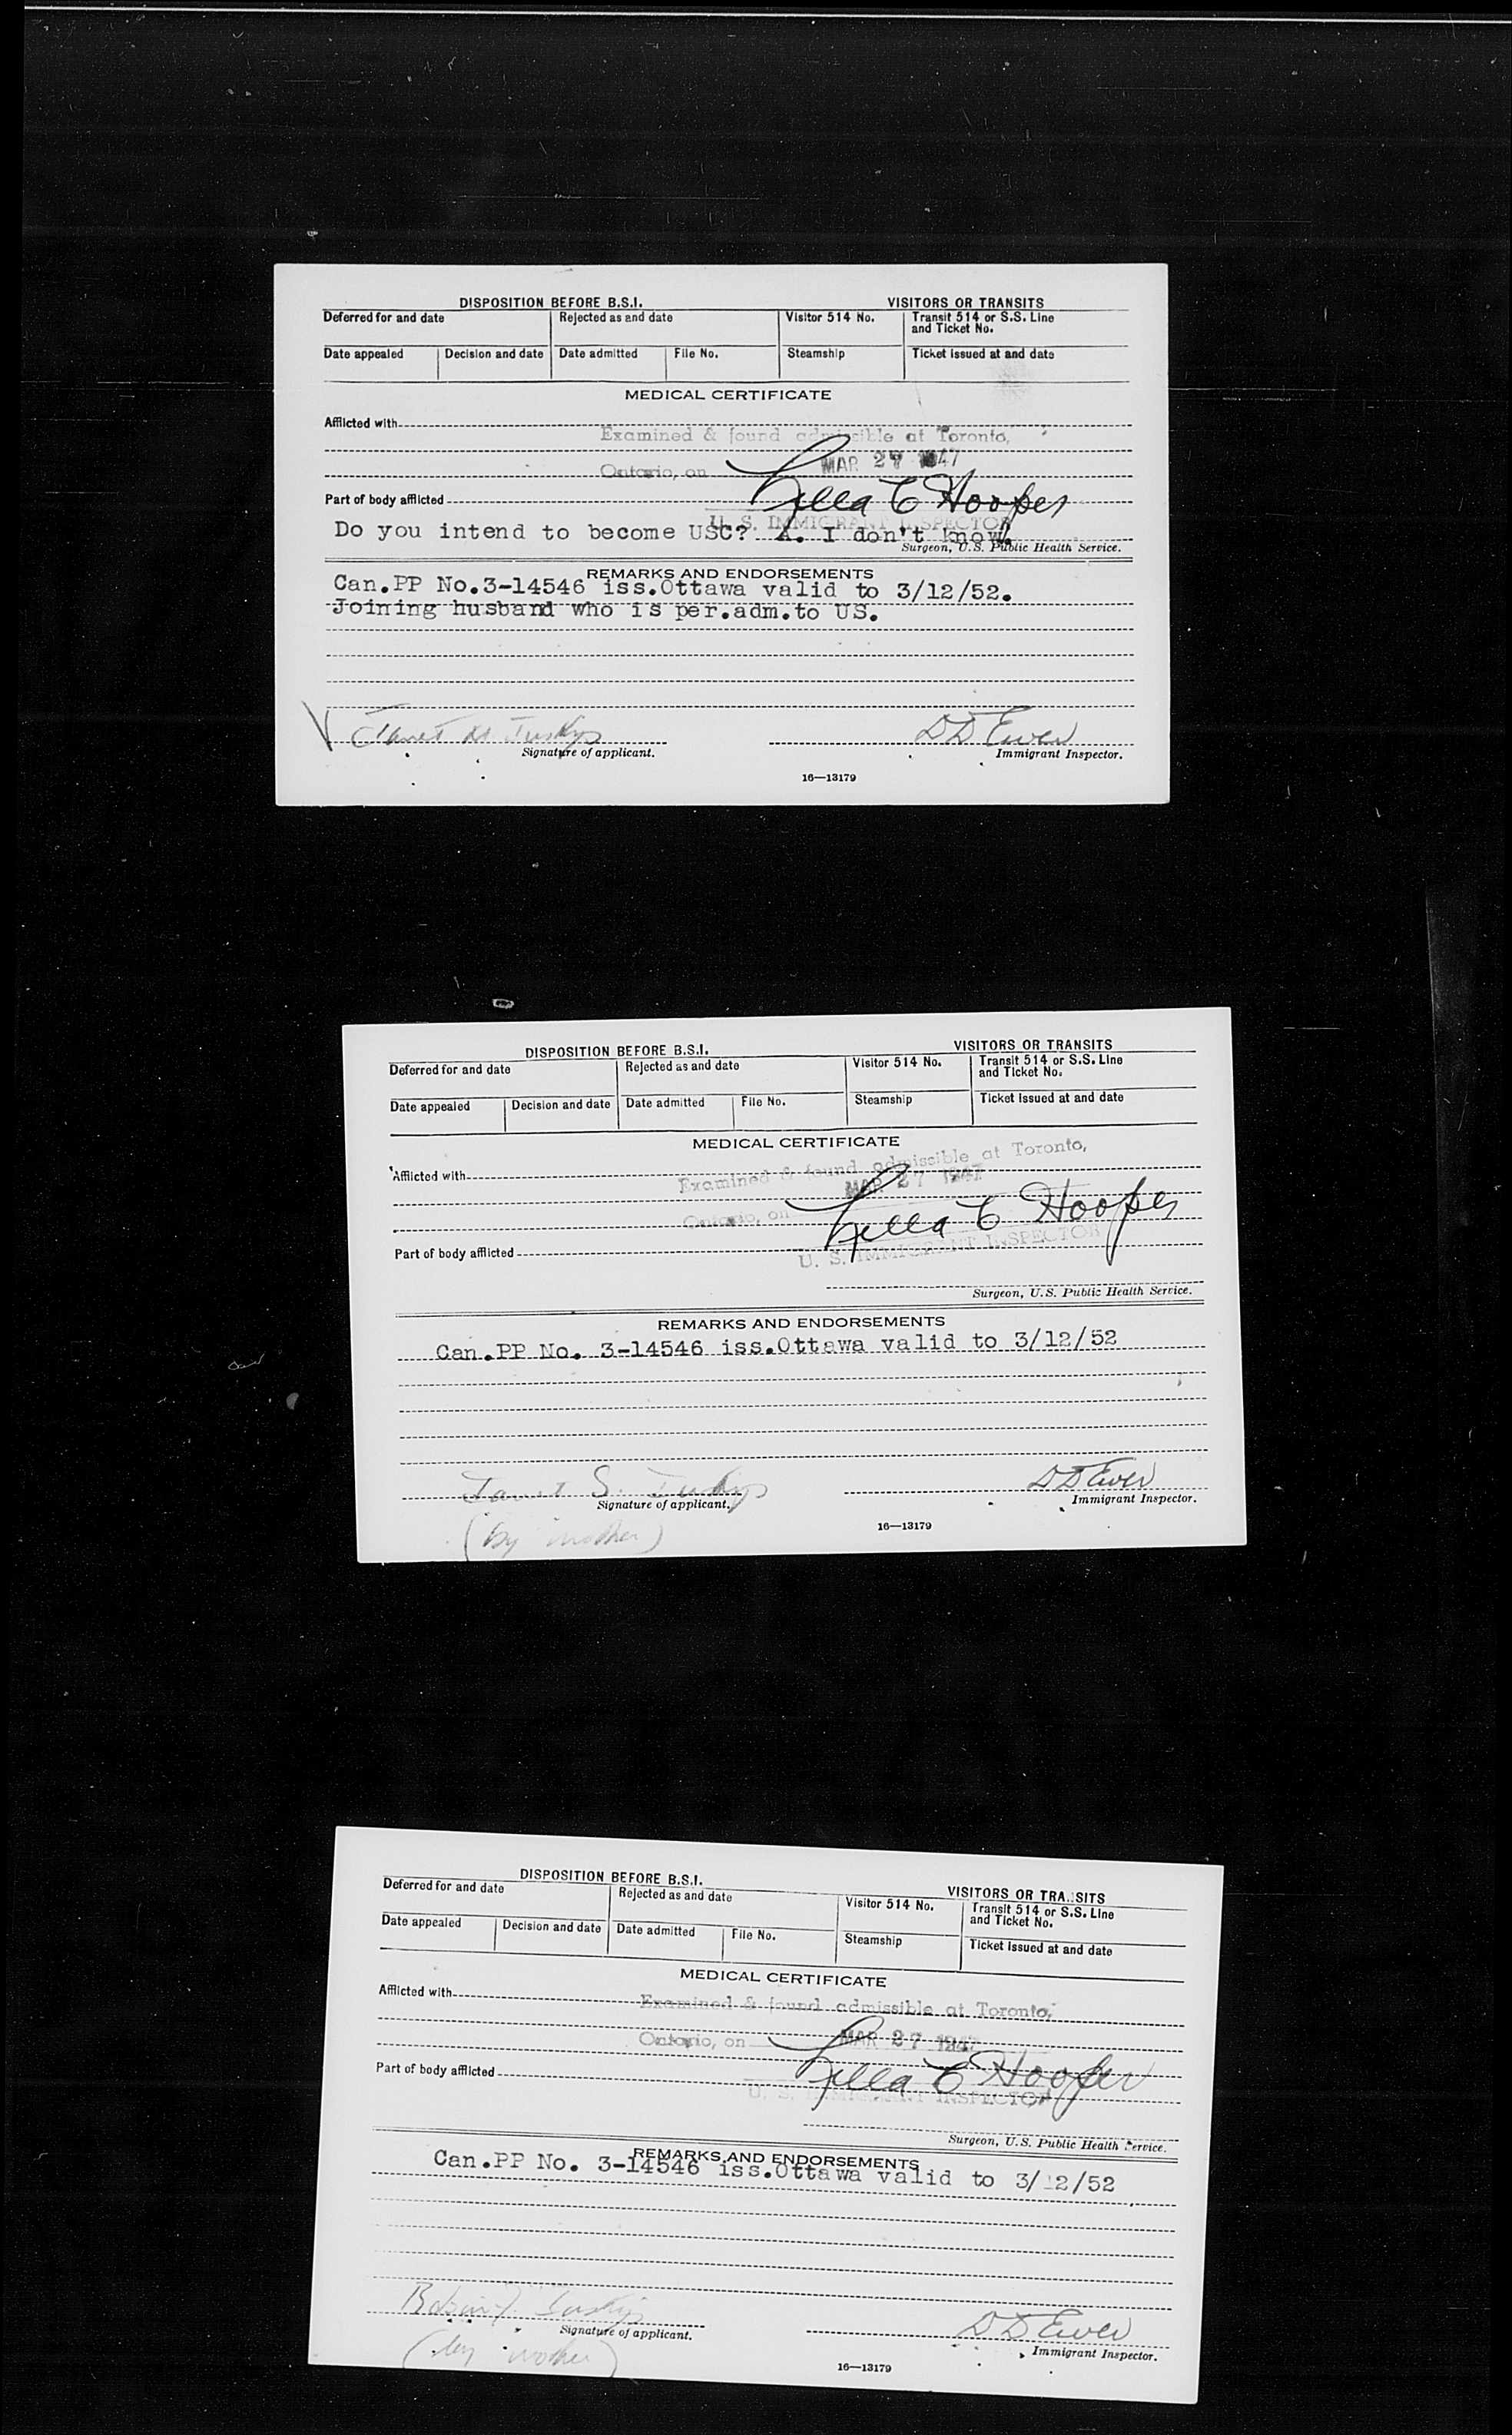 DISPOSITION BEFORE B.S.I. VISITORS OR TRANSITS
Deferred for and date Rejected as and date Visitor 514 No. Transit 514 or S.S. Line and Ticket No.
Date appealed Decision and date Date admitted File No. Steamship Ticket issued at and date
MEDICAL CERTIFICATE
Afflicted with
Examined & found admissible at Toronto,
Ontario, on MAR 27 1947
Part of body afflicted
C Hooper
U. S. IMMIGRANT INSPECTOR
Do you intend to become USC? A. I don't know.
Surgeon, U.S. Public Health Service.
REMARKS AND ENDORSEMENTS
Can.PP No.3-14546 iss.Ottawa valid to 3/12/52.
Joining husband who is per.adm.to US.
Janet DD Ewer
Signature of applicant. Immigrant Inspector.
16—13179
DISPOSITION BEFORE B.S.I. VISITORS OR TRANSITS
Deferred for and date Rejected as and date Visitor 514 No. Transit 514 or S.S. Line and Ticket No.
Date appealed Decision and date Date admitted File No. Steamship Ticket issued at and date
MEDICAL CERTIFICATE
Afflicted with
Examined & found admissible at Toronto,
MAR 27 1947
Ontario, on
C Hooper
Part of body afflicted
U. S. IMMIGRANT INSPECTOR
Surgeon, U.S. Public Health Service.
REMARKS AND ENDORSEMENTS
Can.PP No. 3-14546 iss.Ottawa valid to 3/12/52
Janet S. DD Ewer
Signature of applicant. Immigrant Inspector.
(by mother)
16—13179
DISPOSITION BEFORE B.S.I. VISITORS OR TRANSITS
Deferred for and date Rejected as and date Visitor 514 No. Transit 514 or S.S. Line and Ticket No.
Date appealed Decision and date Date admitted File No. Steamship Ticket issued at and date
MEDICAL CERTIFICATE
Afflicted with
Examined & found admissible at Toronto,
Ontario, on MAR 27 1947
Part of body afflicted
C Hooper
U. S. IMMIGRANT INSPECTOR
Surgeon, U.S. Public Health Service.
REMARKS AND ENDORSEMENTS
Can.PP No. 3-14546 iss.Ottawa valid to 3/12/52
DD Ewer
Signature of applicant. Immigrant Inspector.
(by mother)
16—13179